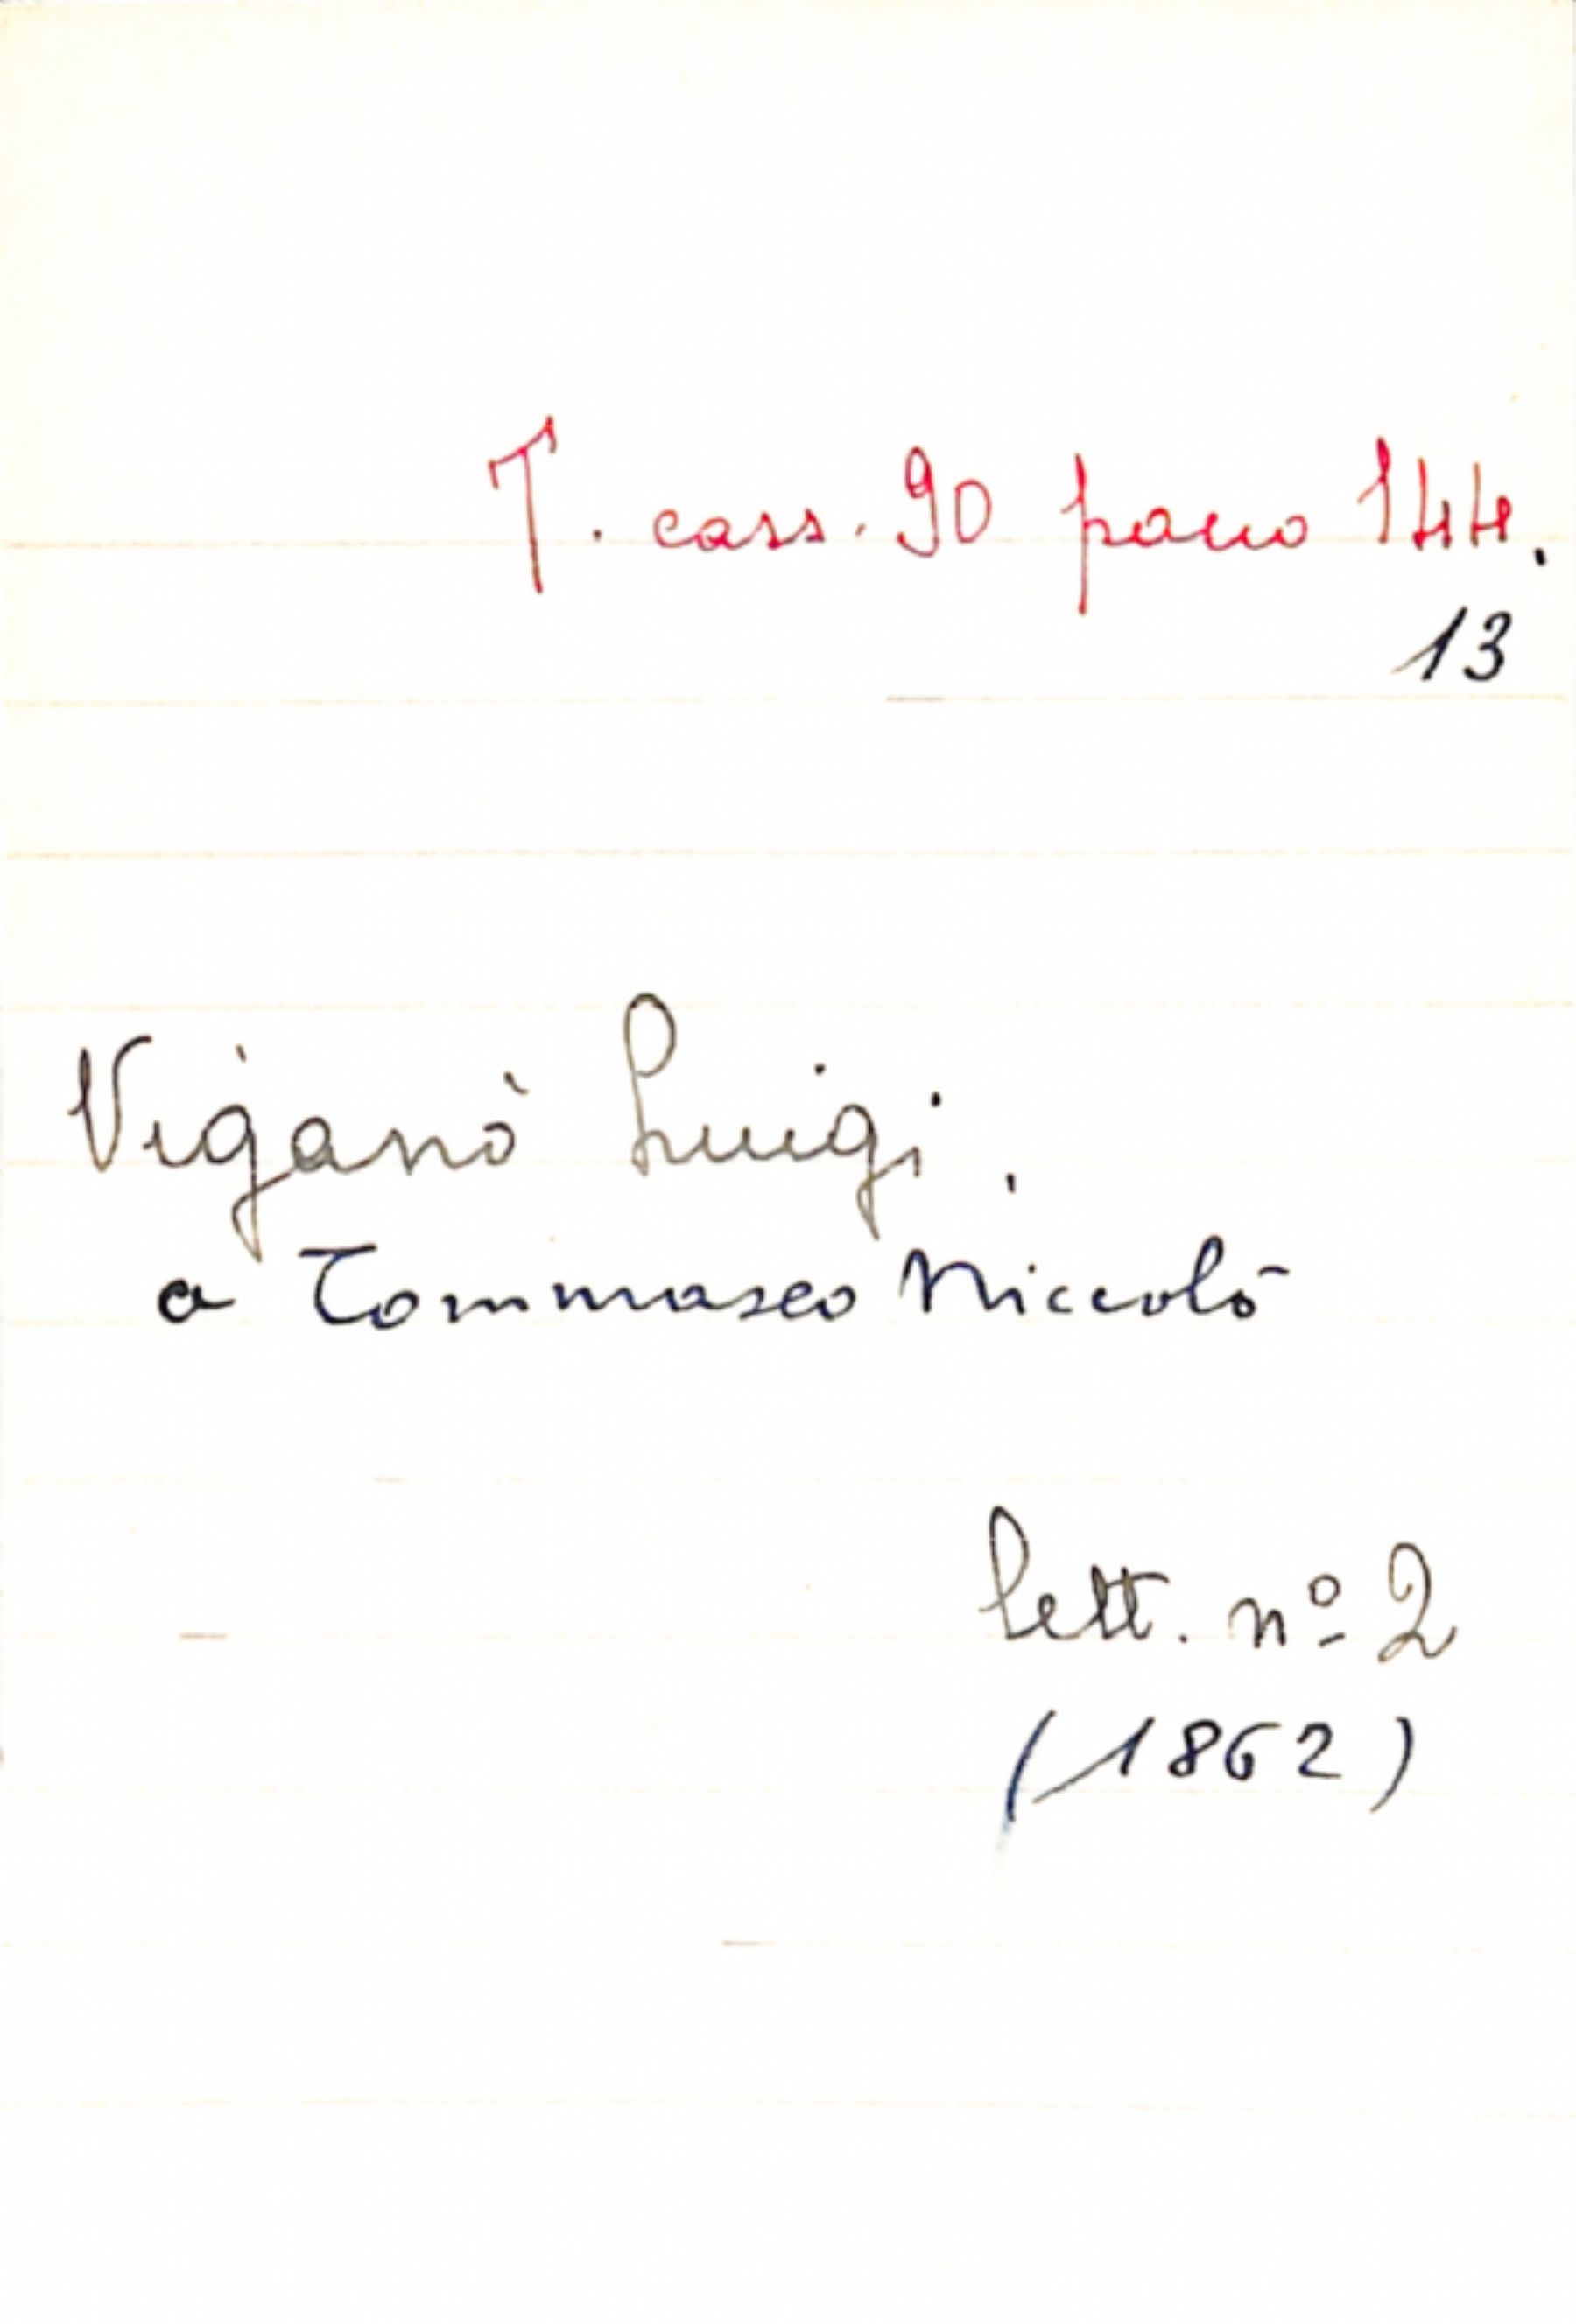 T. cass. 90 pacco 144.
13
Viganò Luigi.
a Tommaseo Niccolò
lett. nº 2
(1862)